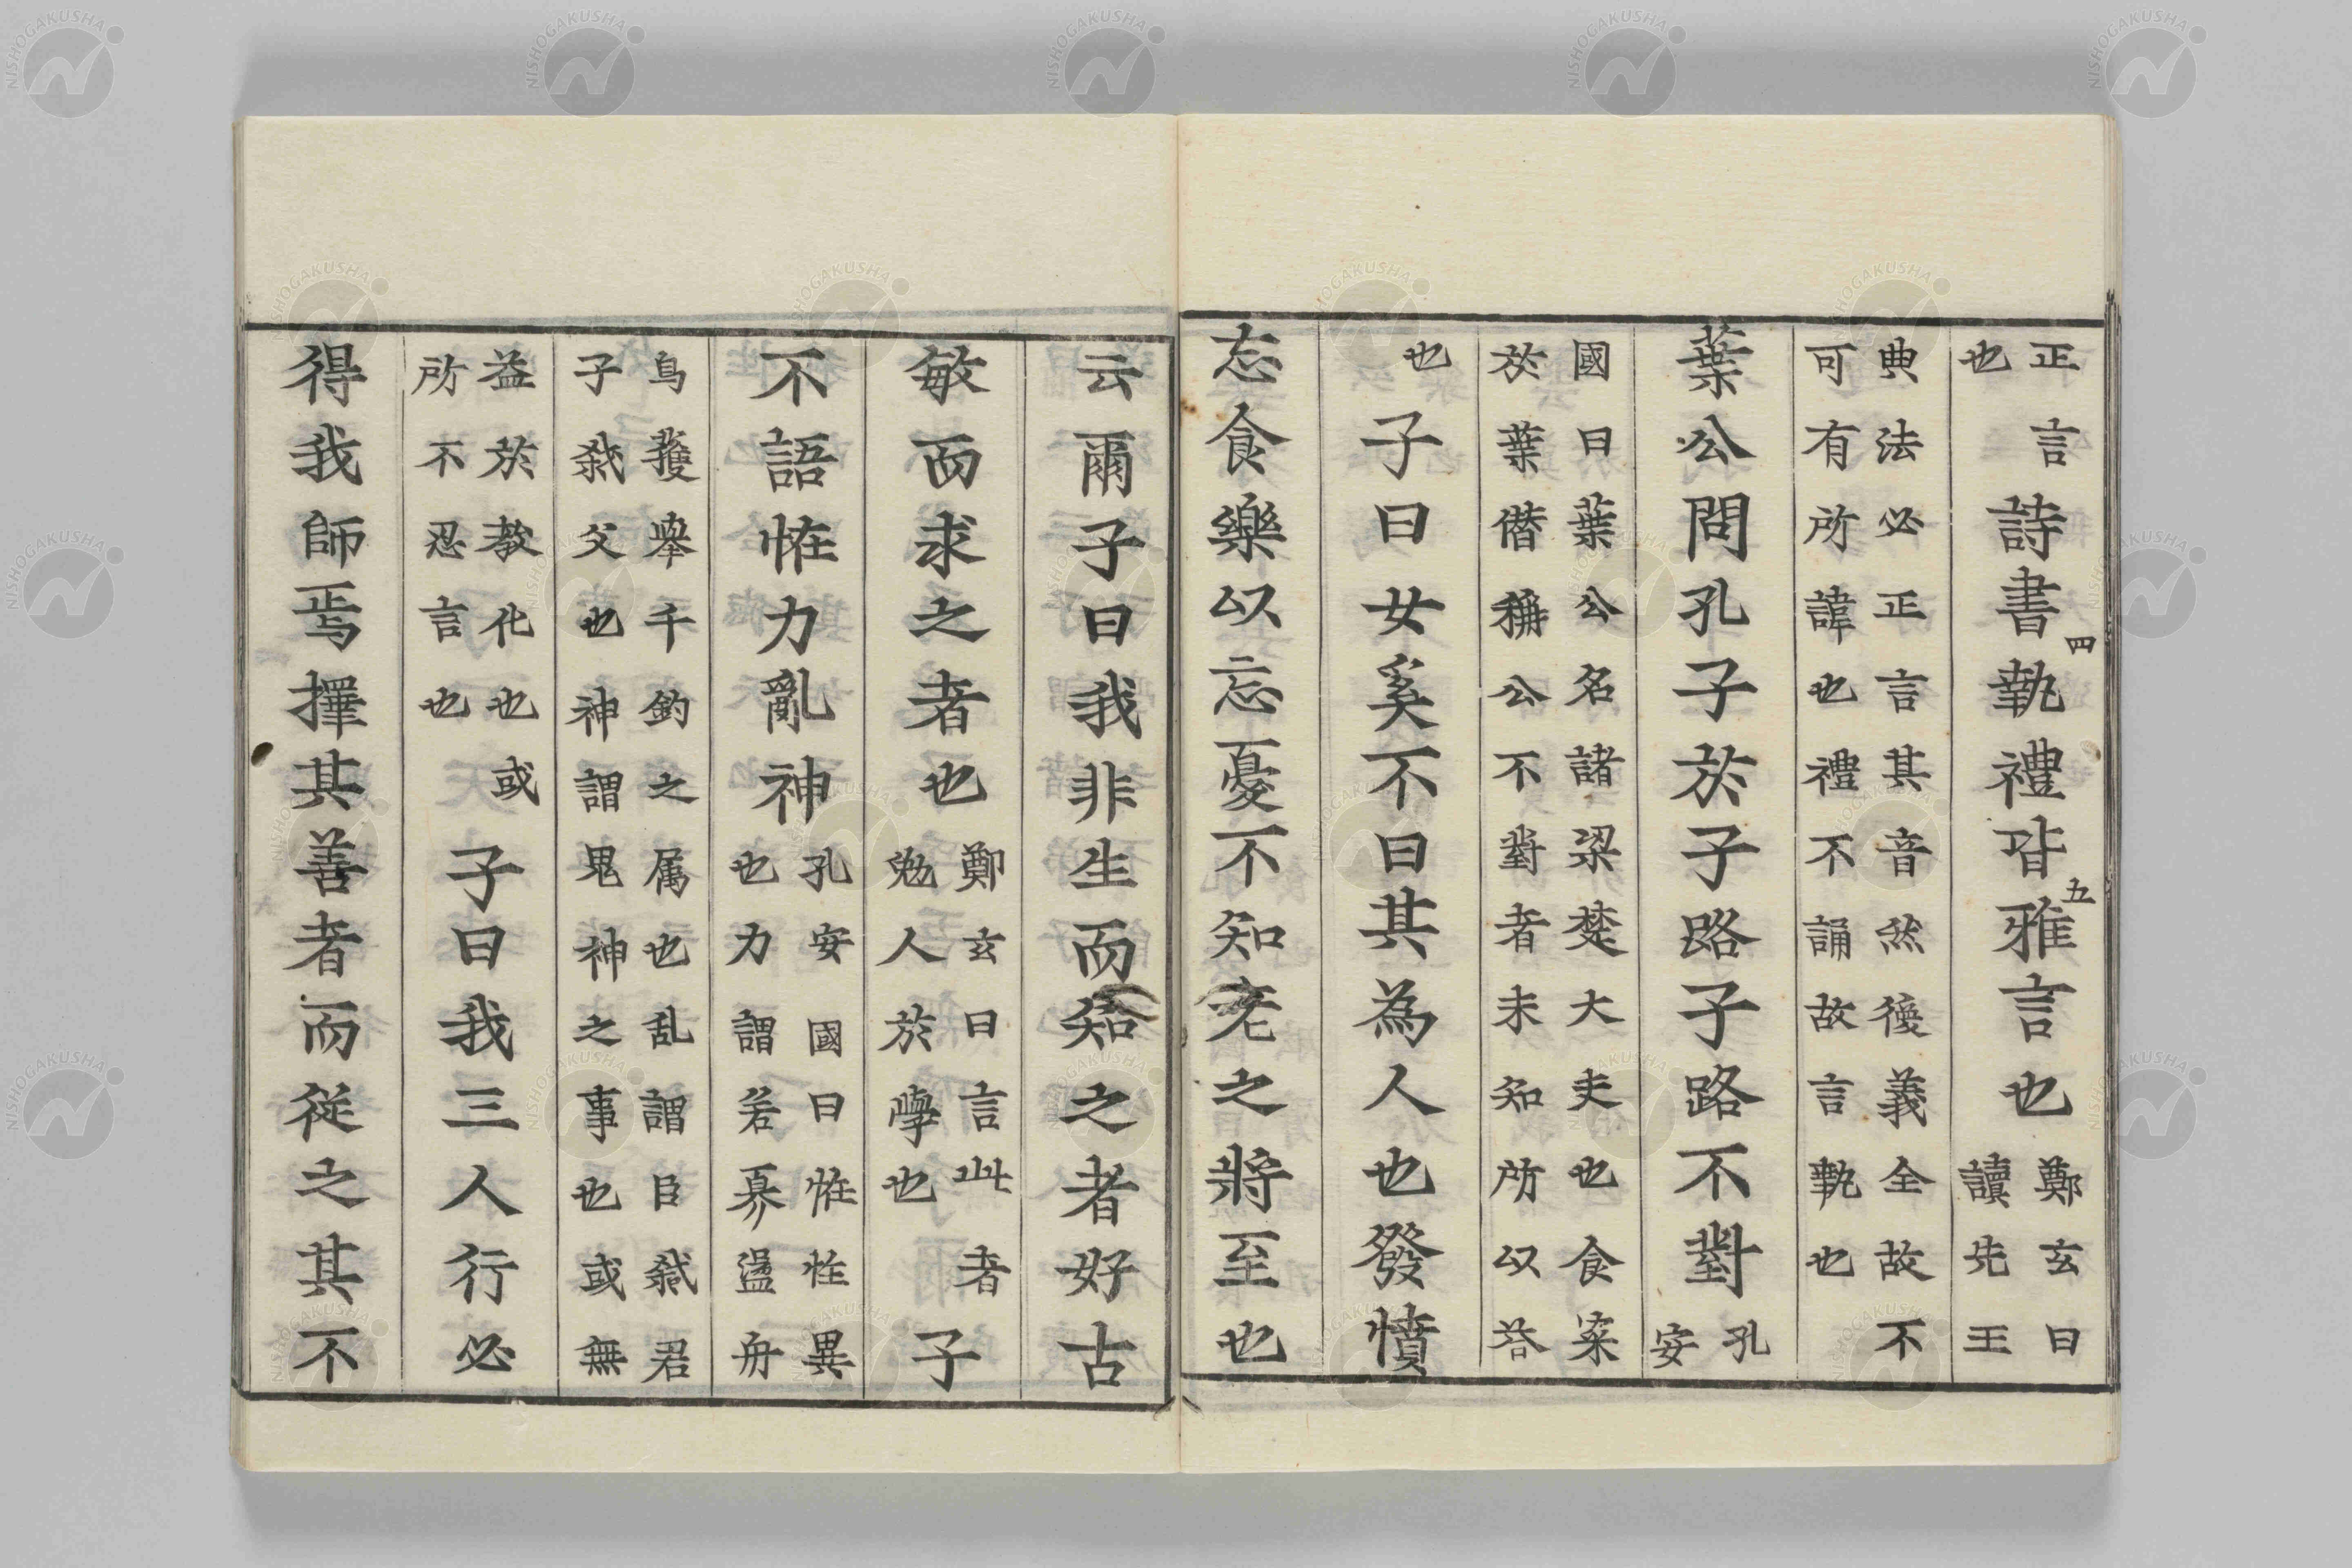 正言
也
詩書執禮皆雅言也
四
五
鄭玄曰
讀先王
典法必正言其音然後義全故不
可有所諱也禮不誦故言執也
葉公問孔子於子路子路不對
孔
安
國曰葉公名諸梁楚大夫也食菜
於葉僭稱公不對者未知所以荅
也
子曰女奚不曰其為人也發憤
忘食樂以忘憂不知老之將至也
云爾子曰我非生而知之者好古
敏而求之者也
鄭玄曰言此者
勉人於學也
子
不語恠力亂神
孔安國曰恠恠異
也力謂若奡盪舟
烏獲舉千鈞之属也乱謂臣弑君
子弑父也神謂鬼神之事也或無
益於教化也或
所不忍言也
子曰我三人行必
得我師焉擇其善者而從之其不
NISHOGAKUSHA